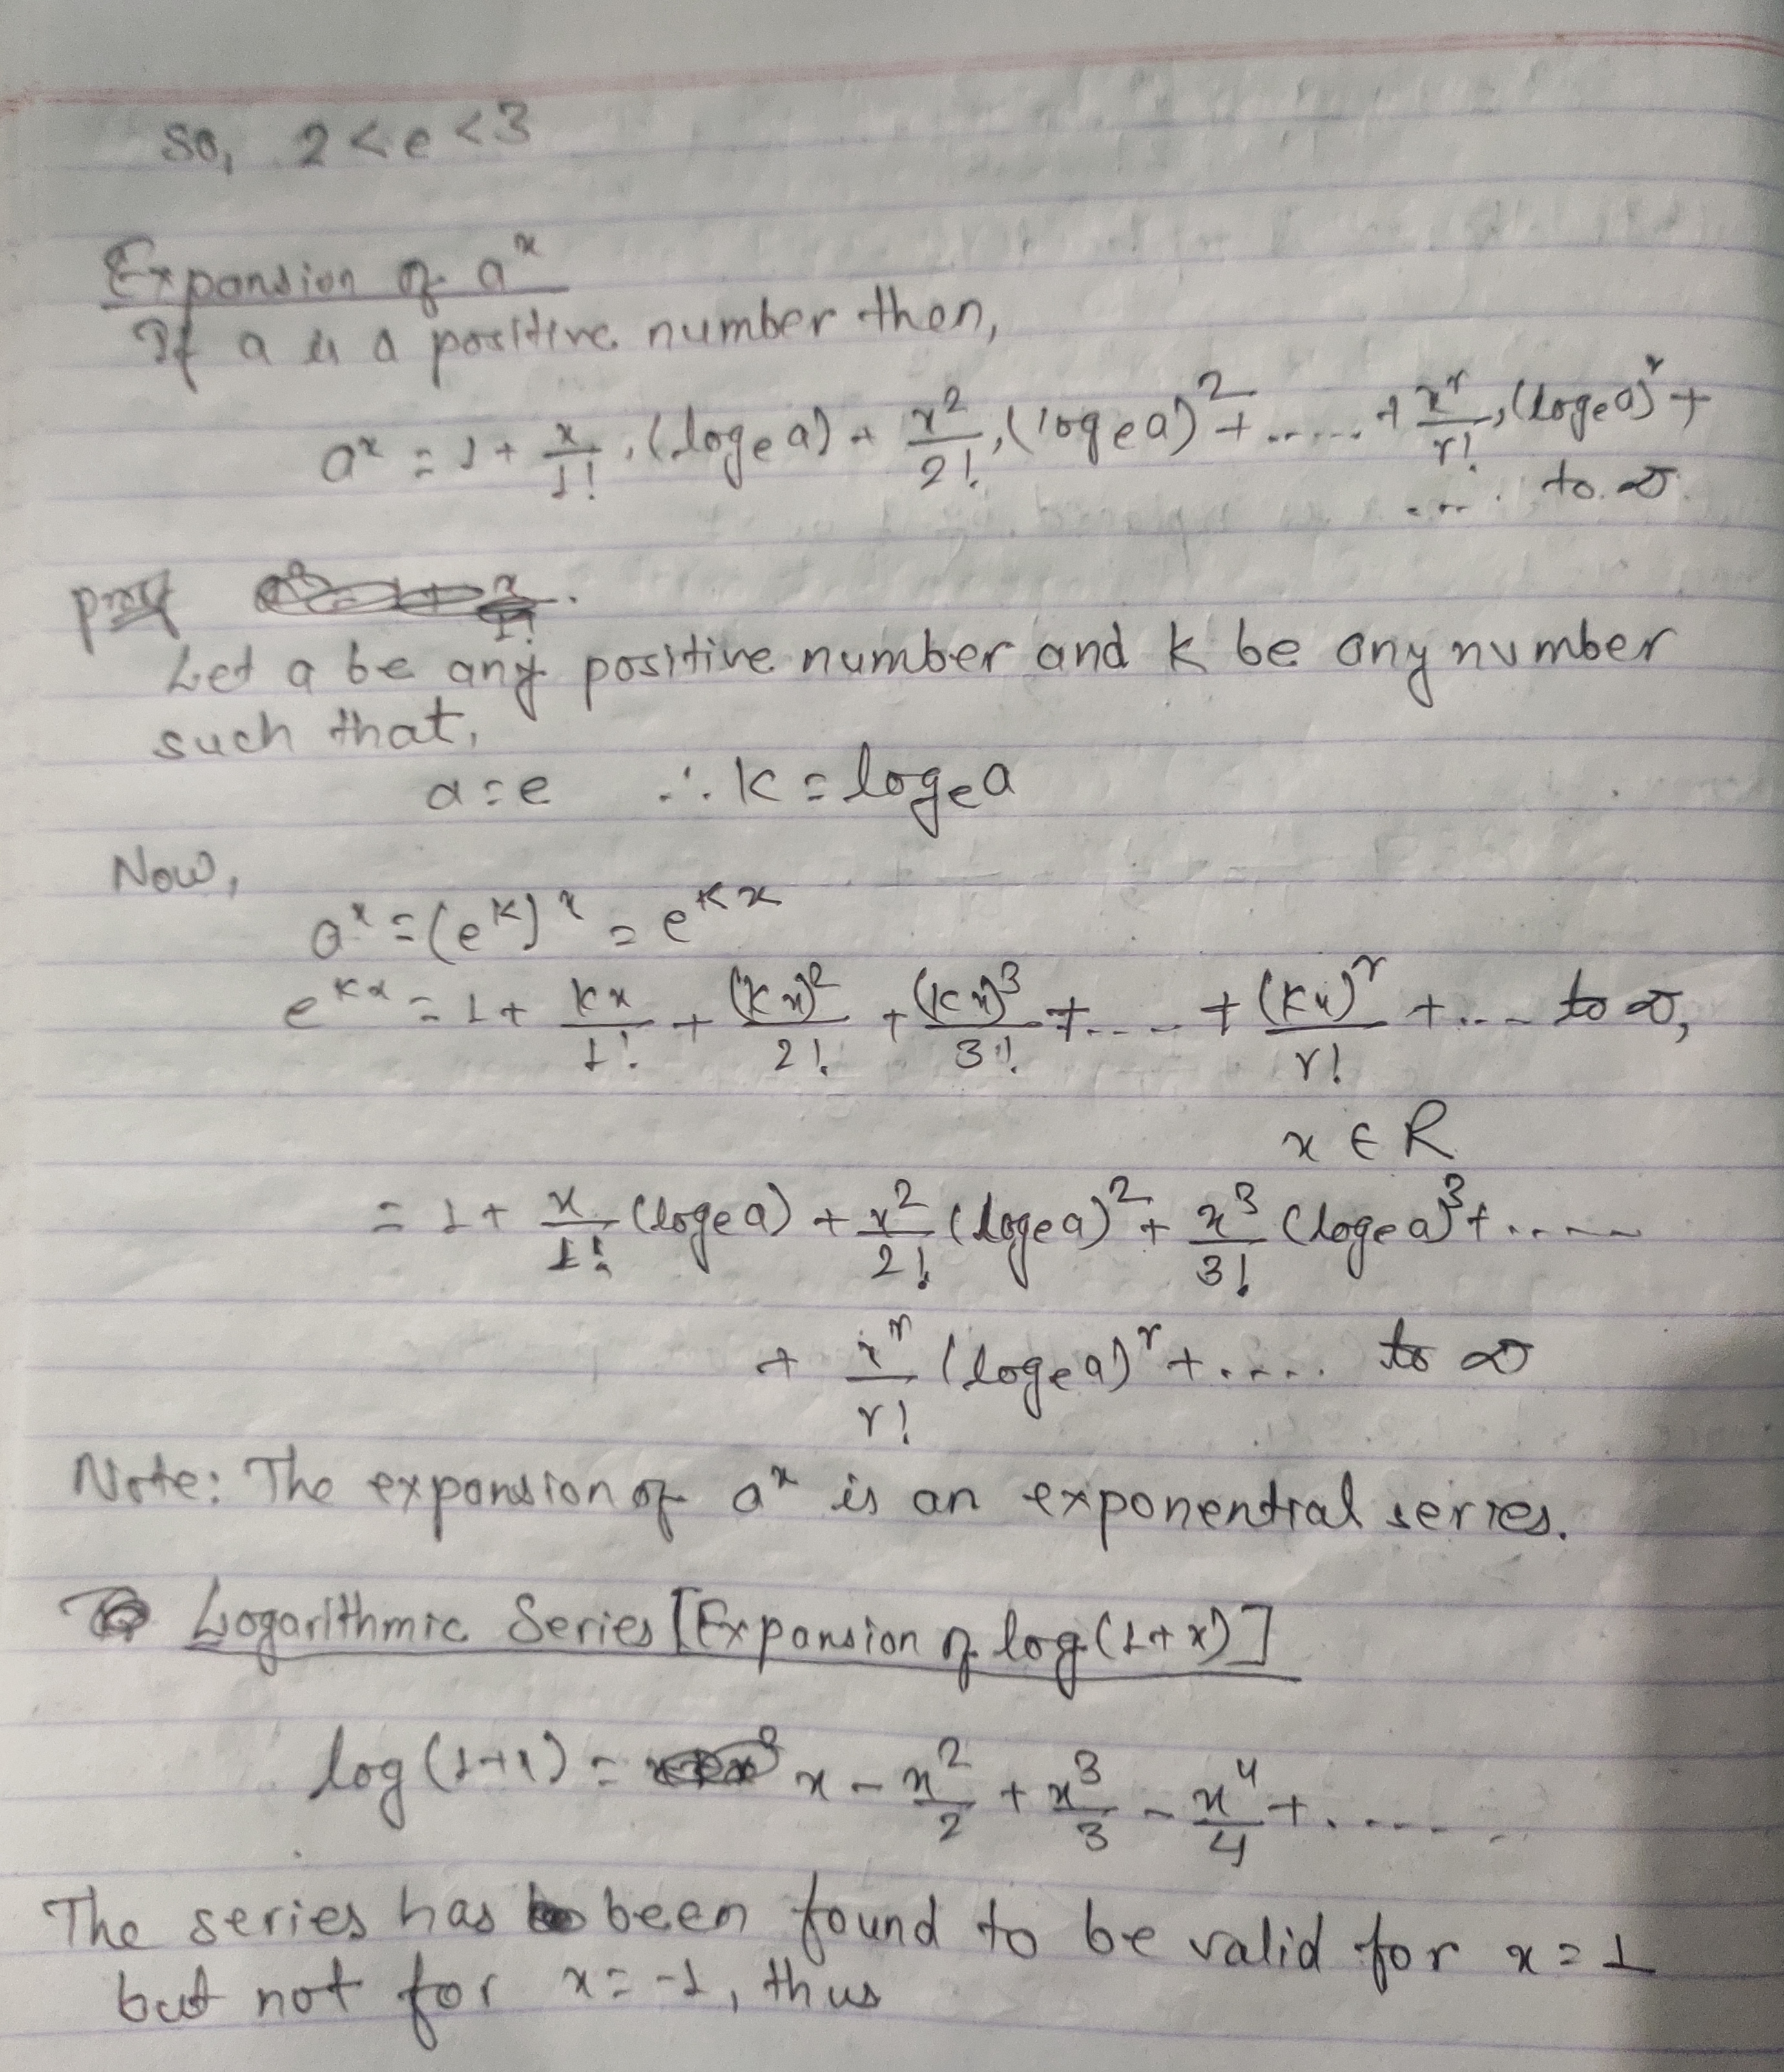 So, 2 < e < 3
Expansion of a^x
If a is a positive number then,
a^x = 1 + x/1! . (log_e a) + x^2/2! . (log_e a)^2 + ...... + x^r/r! . (log_e a)^r +
.... to ∞.
proof
Let a be any positive number and k be any number
such that,
a = e ∴ k = log_e a
Now,
a^x = (e^k)^x = e^kx
e^kx = 1 + kx/1! + (kx)^2/2! + (kx)^3/3! + .... + (kx)^r/r! + .... to ∞,
x ∈ R
= 1 + x/1! (log_e a) + x^2/2! (log_e a)^2 + x^3/3! (log_e a)^3 + .....
+ x^r/r! (log_e a)^r + ..... to ∞
Note: The expansion of a^x is an exponential series.
Logarithmic Series [Expansion of log(1+x)]
log(1+x) = x - x^2/2 + x^3/3 - x^4/4 + ......
The series has been found to be valid for x = 1
but not for x = -1, thus